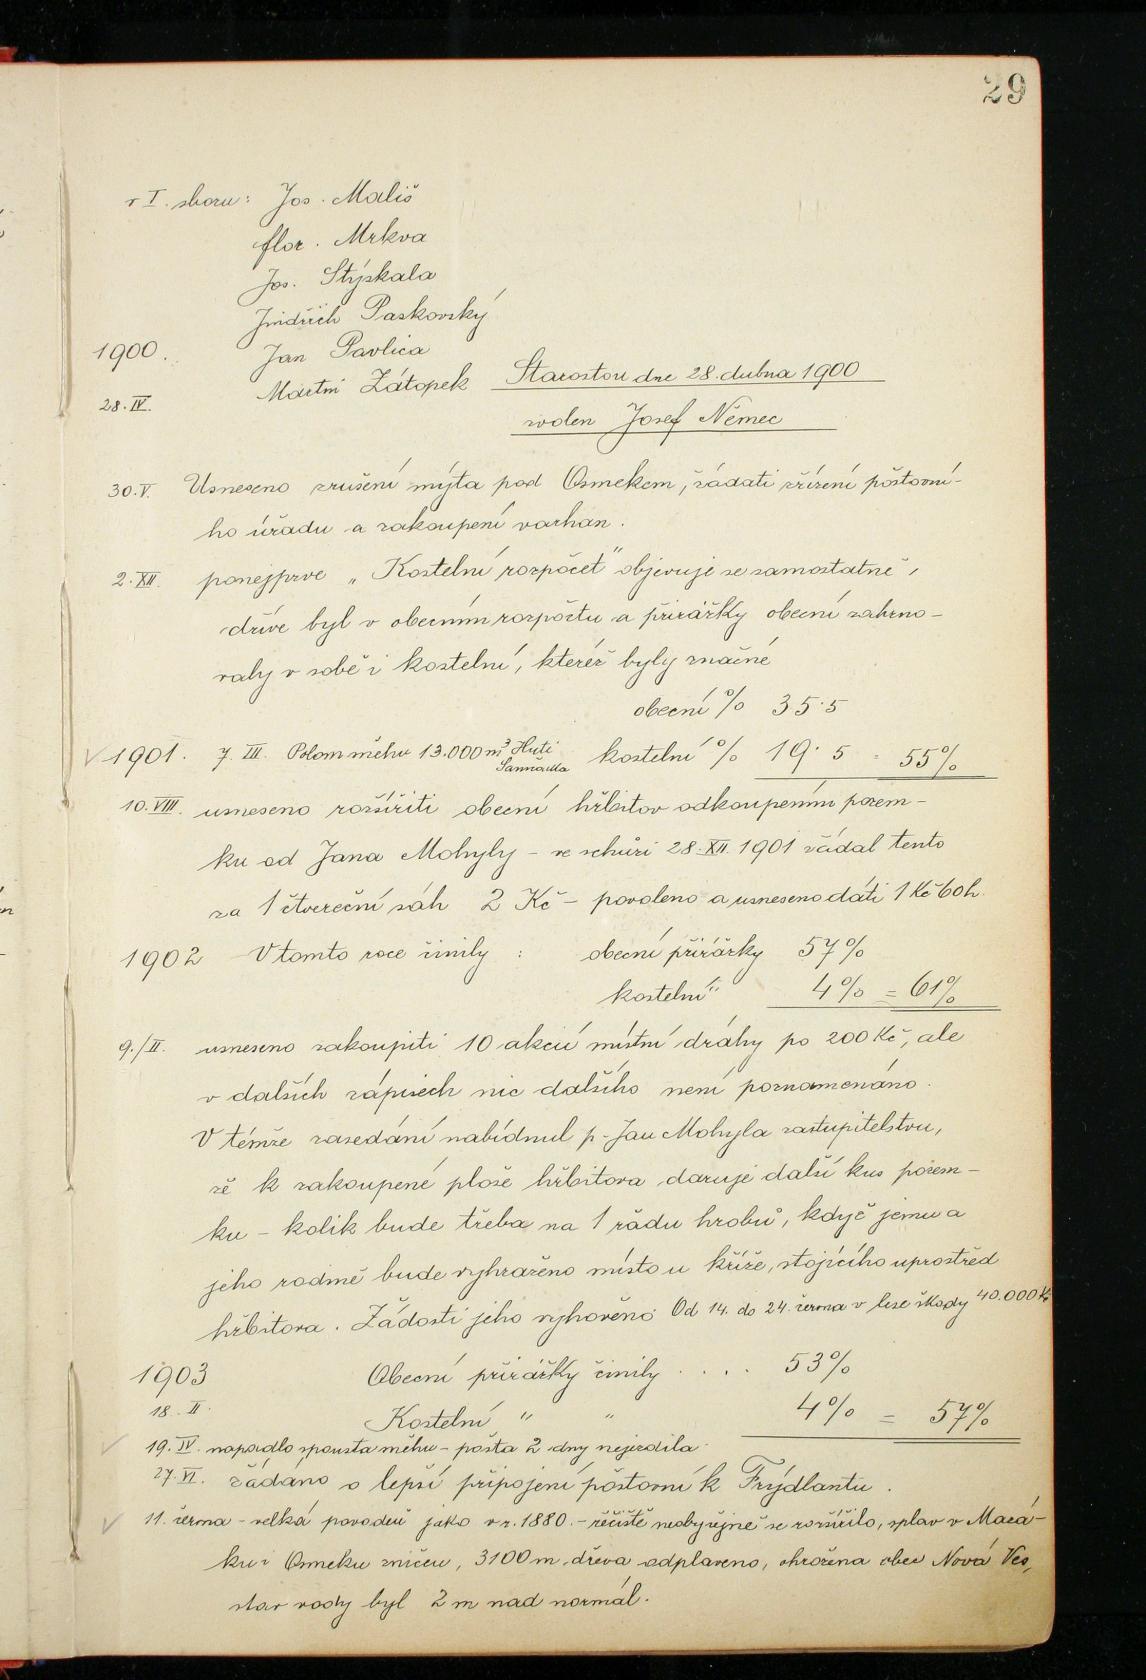 29
v I. sboru: Jos. Mališ
flor. Mrkva
Jos. Stýskala
Jindřich Paskovský
1900. Jan Pavlica
28. IV. Martin Zátopek Starostou dne 28. dubna 1900
zvolen Josef Němec
30. V. Usneseno zrušení mýta pod Osmekem, žádati zřízení poštovní-
ho úřadu a zakoupení varhan.
2. XII. ponejprve „Kostelní rozpočet" objevuje se samostatně,
dříve byl v obecním rozpočtu a přirážky obecní zahrno-
valy v sobě i kostelní, kteréž byly značné
obecní % 35·5
1901. 7. III. Polom sněhu 13.000 m³ Huti kostelní % 19·5 = 55%
10. VIII. usneseno rozšířiti obecní hřbitov odkoupením pozem-
ku od Jana Mohyly - ve schůzi 28. XII. 1901 žádal tento
za 1 čtvereční sáh 2 Kč - povoleno a usneseno dáti 1 Kč 60 h.
1902 V tomto roce činily : obecní přirážky 57%
kostelní " 4% = 61%
9./II. usneseno zakoupiti 10 akcií místní dráhy po 200 Kč, ale
v dalších zápisech nic dalšího není poznamenáno.
V témže zasedání nabídnul p. Jan Mohyla zastupitelstvu,
že k zakoupené ploše hřbitova daruje další kus pozem-
ku - kolik bude třeba na 1 řadu hrobů, když jemu a
jeho rodině bude vyhraženo místo u kříže, stojícího uprostřed
hřbitova. Žádosti jeho vyhověno. Od 14. do 24. června v lese škody 40.000 K
1903 Obecní přirážky činily . . . . 53%
18. II. Kostelní " " 4% = 57%
19. IV. napadlo spousta sněhu - pošta 2 dny nejezdila.
27. VI. žádáno o lepší připojení poštovní k Frýdlantu.
11. června - velká povodeň jako v r. 1880. - řečiště neobyčejně se rozšířilo, splav v Macá-
ku i Osmeku zničen, 3100 m dřeva odplaveno, ohrožena obec Nová Ves,
stav vody byl 2 m nad normál.